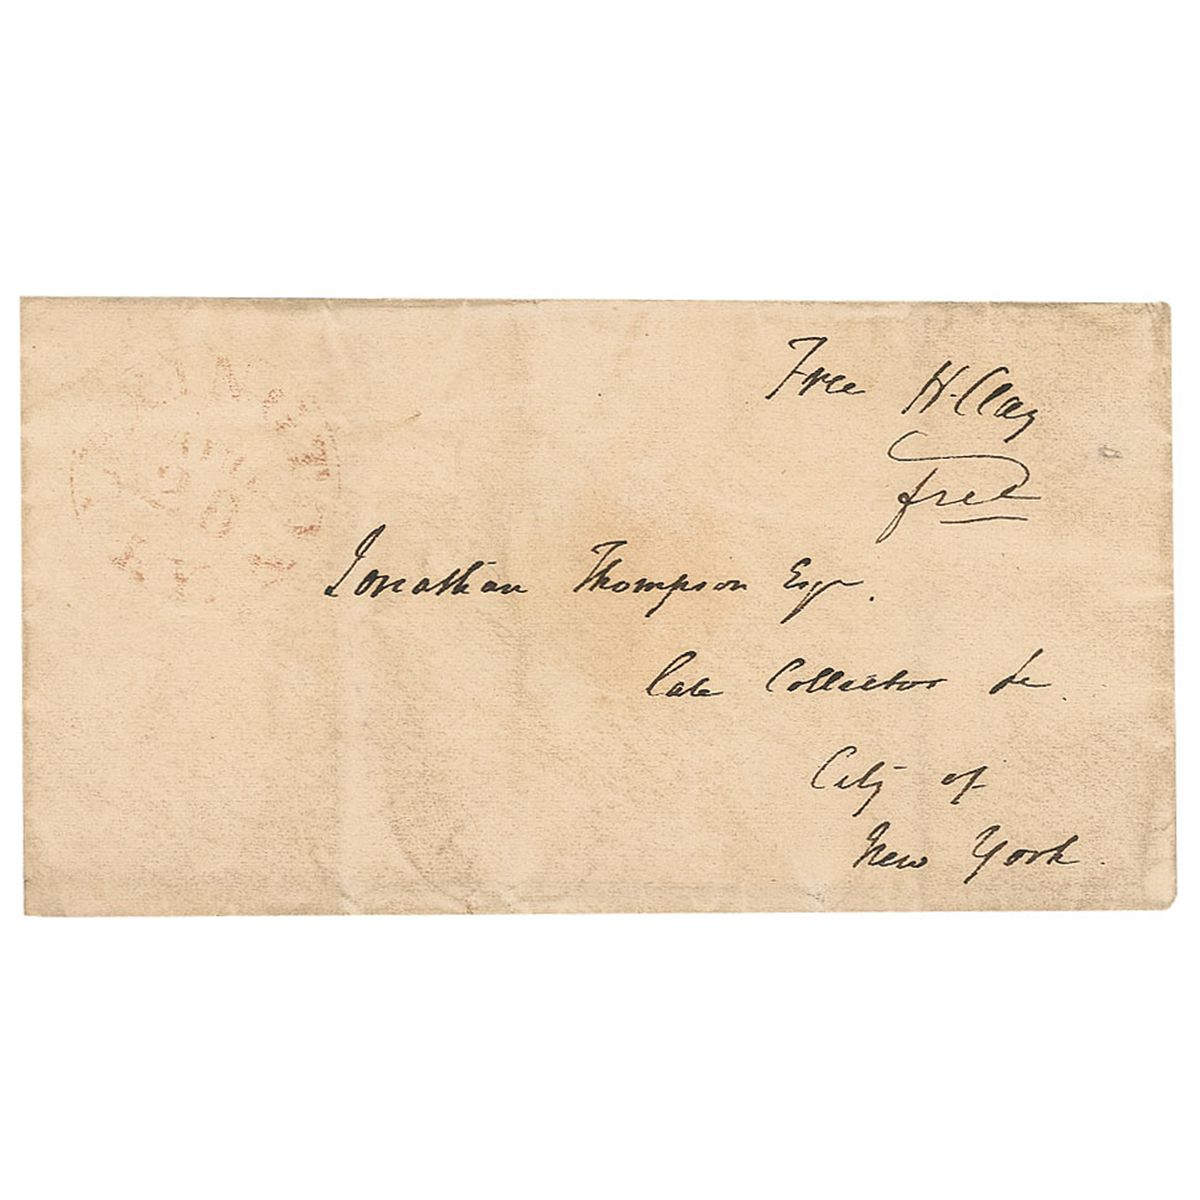 Free H. Clay
free
Jonathan Thompson Esqr.
Late Collector &c.
City of
New York.